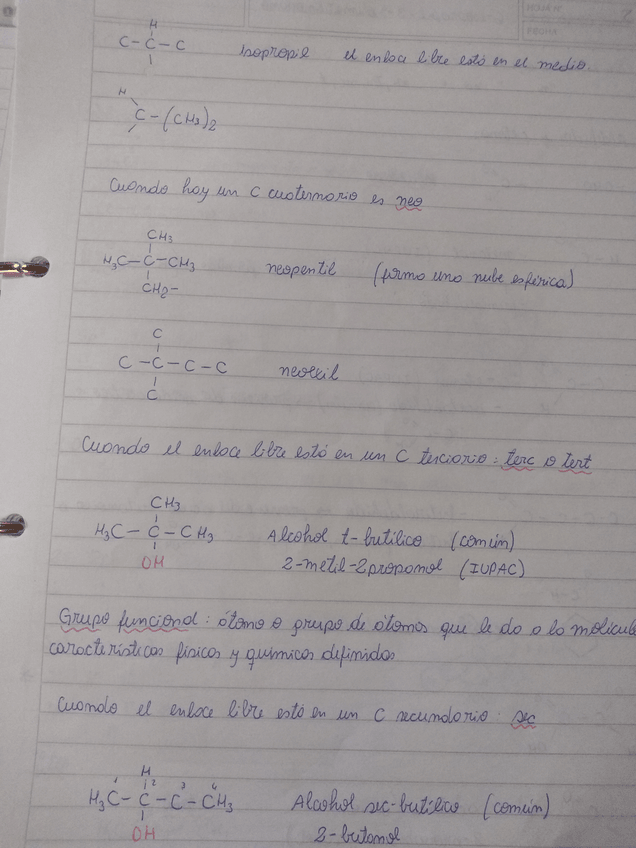 H
C - C - C   Isopropil   el enlace libre está en el medio.
H
C - (CH3)2
Cuando hay un C cuaternario es neo
CH3
H3C - C - CH3   neopentil   (forma una nube esférica)
CH2 -
C
C - C - C - C   neoexil
C
Cuando el enlace libre está en un C terciario: terc o tert
CH3
H3C - C - CH3   Alcohol t-butílico (común)
OH   2-metil-2propanol (IUPAC)
Grupo funcional: átomo o grupo de átomos que le da a la molécula
características físicas y químicas definidas
Cuando el enlace libre está en un C secundario: sec
1 H 2 3 4
H3C - C - C - CH3   Alcohol sec-butílico (común)
OH   2-butanol